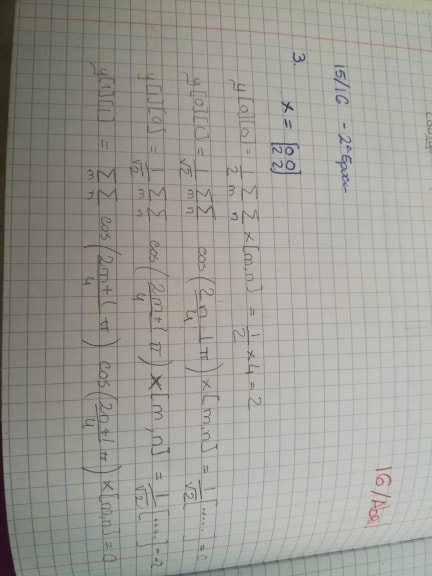 15/16 - 2ª Época
3. x = [0 0
2 2]
y[0][0] = 1/2 Σm Σn x[m,n] = 1/2 × 4 = 2
y[0][1] = 1/√2 Σm Σn cos(2n+1/4 π) x[m,n] = 1/√2 [.....] = 0
y[1][0] = 1/√2 Σm Σn cos(2m+1/4 π) x[m,n] = 1/√2 [.....] = -2
y[1][1] = Σm Σn cos(2m+1/4 π) cos(2n+1/4 π) x[m,n] = 0